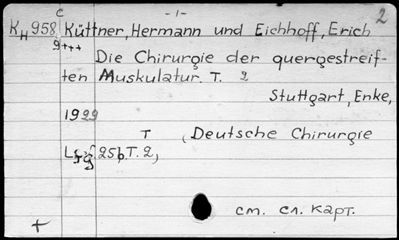 C -1- 2
KH958 Küttner, Hermann und Eichhoff, Erich
9+++
Die Chirurgie der quergestreif-
ten Muskulatur. T. 2
Stuttgart, Enke,
1929
T (Deutsche Chirurgie
25b, T. 2,
см. сл. карт.
+